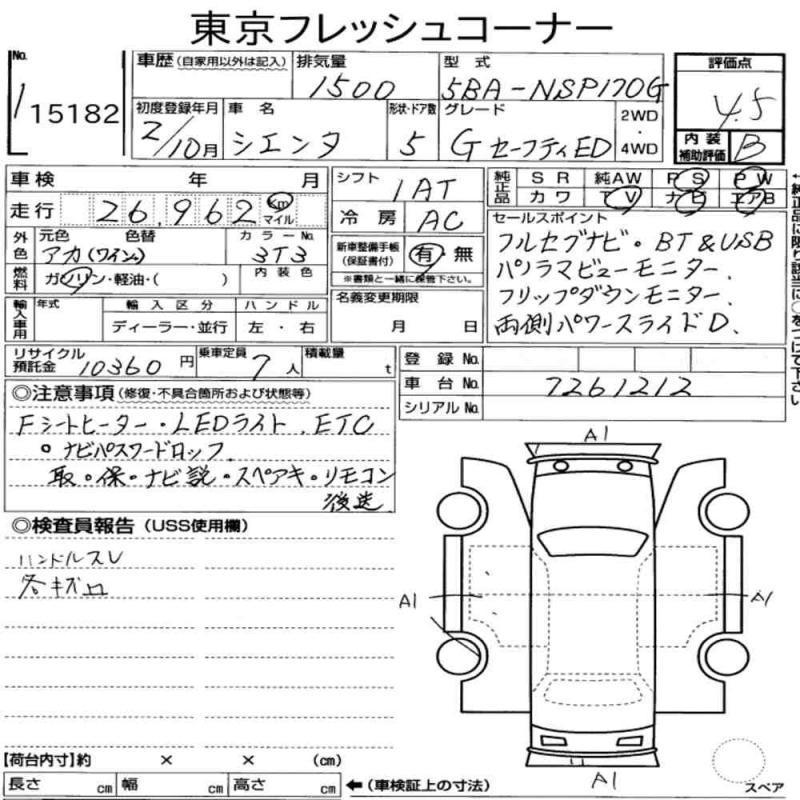 東京フレッシュコーナー
No. 15182
車歴 (自家用以外は記入) 排気量 1500 型式 5BA-NSP170G
初度登録年月 2/10月 車名 シエンタ 形状・ドア数 5 グレード G セーフティED 2WD・4WD
評価点 4.5
内装補助評価 B
車検 年 月
走行 26,962 Km マイル
外色 元色 色替 アカ(ワイン) カラーNo. 3T3
燃料 ガソリン・軽油・( ) 内装色
シフト IAT
冷房 AC
新車整備手帳(保証書付) 有・無
※書類と一緒に保管下さい。
名義変更期限
月 日
純正品 SR 純AW PS PW
カワ TV ナビ エアB
セールスポイント
フルセグナビ。BT&USB
パノラマビューモニター、
フリップダウンモニター、
両側パワースライドD、
輸入車用 年式 輸入区分 ハンドル
ディーラー・並行 左・右
リサイクル預託金 10360円 乗車定員 7人 積載量 t
登録No.
車台No. 7261212
シリアルNo.
◎注意事項 (修復・不具合箇所および状態等)
Fシートヒーター・LEDライト、ETC
。ナビパスワードロック
取。保。ナビ説。スペアキ。リモコン
後送
◎検査員報告 (USS使用欄)
ハンドルスレ
各キズ凹
A1
A1
A1
A1
スペア
【荷台内寸】約 × × (cm)
長さ cm 幅 cm 高さ cm ← (車検証上の寸法)